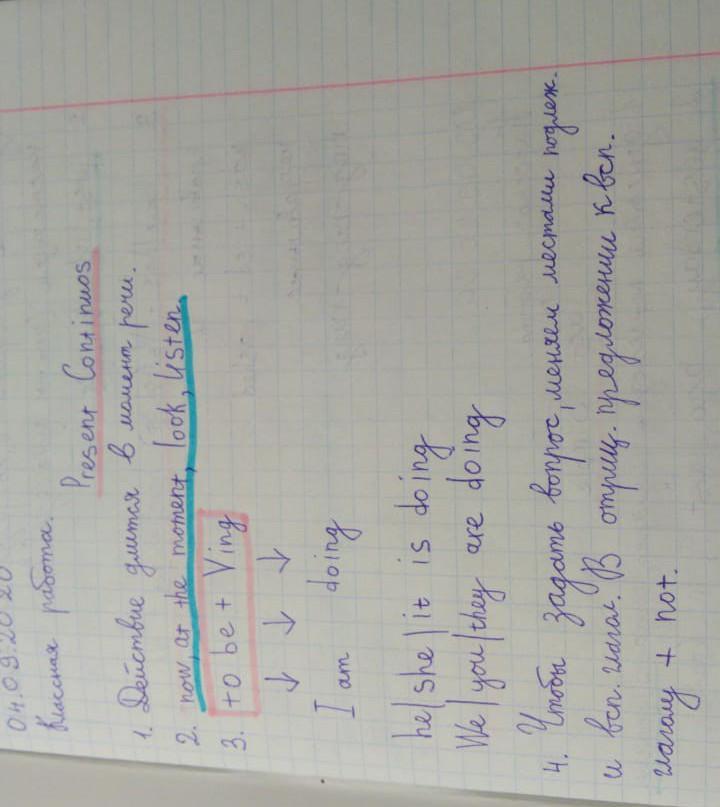 04.09.2020
Классная работа.
Present Continuos
1. Действие длится в момент речи.
2. now, at the moment, look, listen
3. to be + Ving
↓ ↓ ↓
I am doing
he|she|it is doing
We|you|they are doing
4. Чтобы задать вопрос, меняем местами подлеж.
и всп. глагол. В отриц. предложении к всп.
глаголу + not.